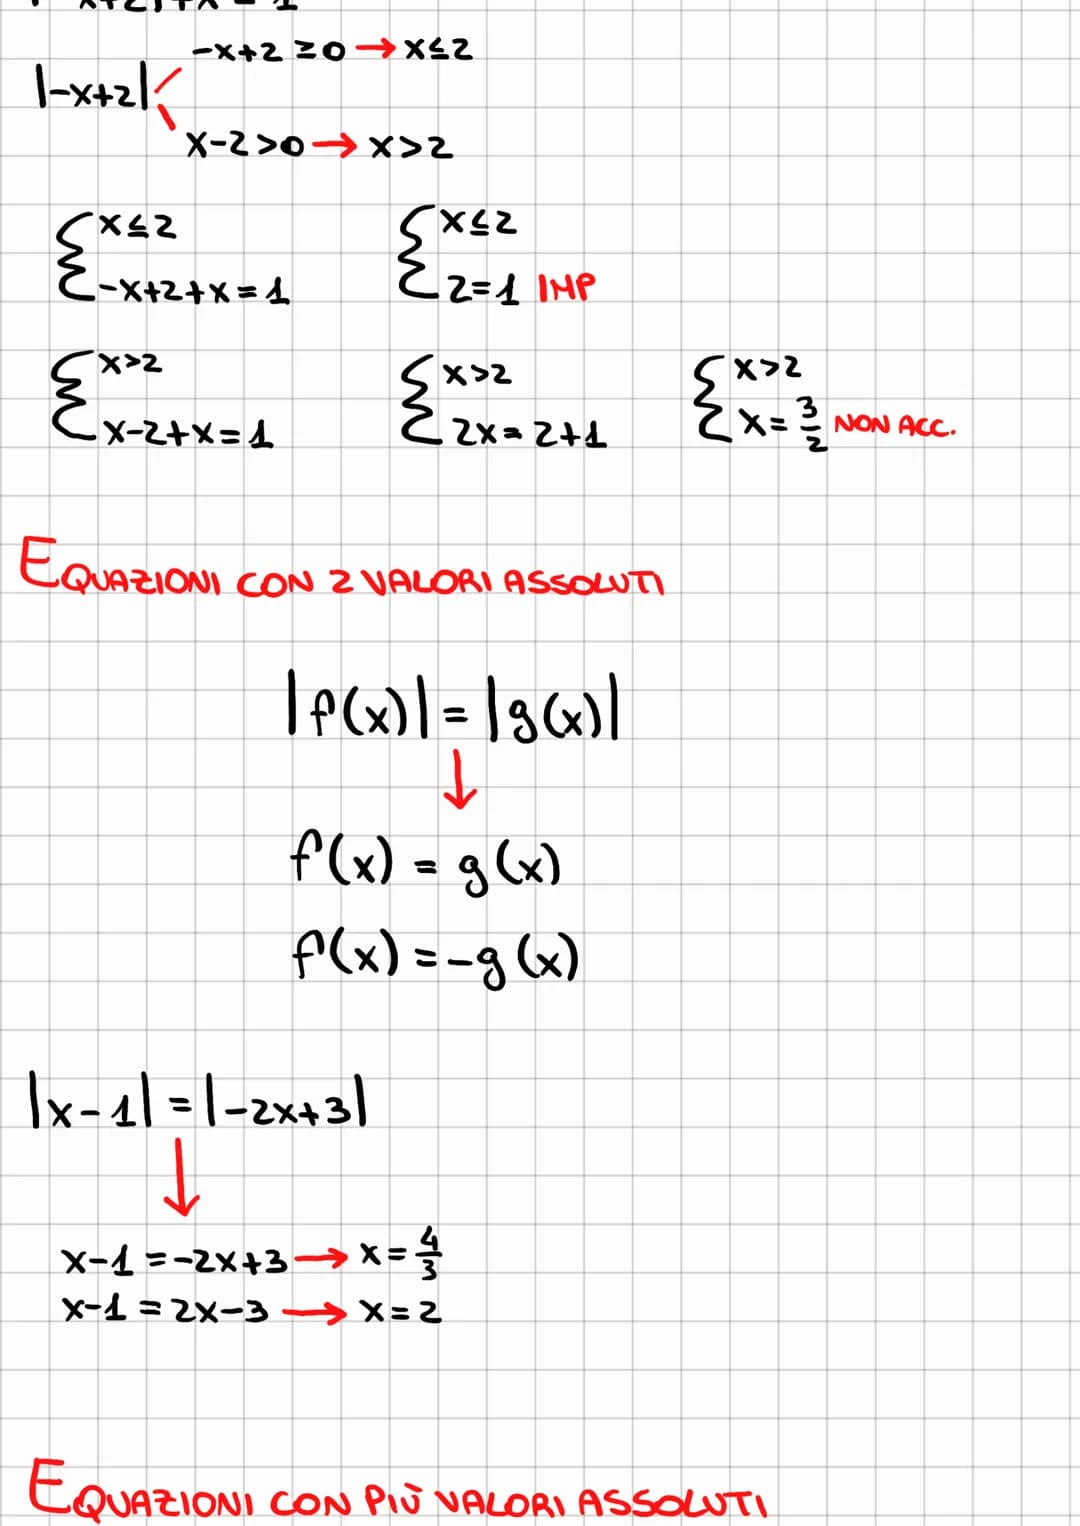 |-x+2|+x=1
-x+2≥0→x≤2
|-x+2|
x-2>0→x>2
{x≤2 {x≤2
-x+2+x=1 2=1 IMP
{x>2 {x>2 {x>2
x-2+x=1 2x=2+1 x=3/2 NON ACC.
EQUAZIONI CON 2 VALORI ASSOLUTI
|f(x)|=|g(x)|
↓
f(x)=g(x)
f(x)=-g(x)
|x-1|=|-2x+3|
↓
x-1=-2x+3→x=4/3
x-1=2x-3→x=2
EQUAZIONI CON PIÙ VALORI ASSOLUTI